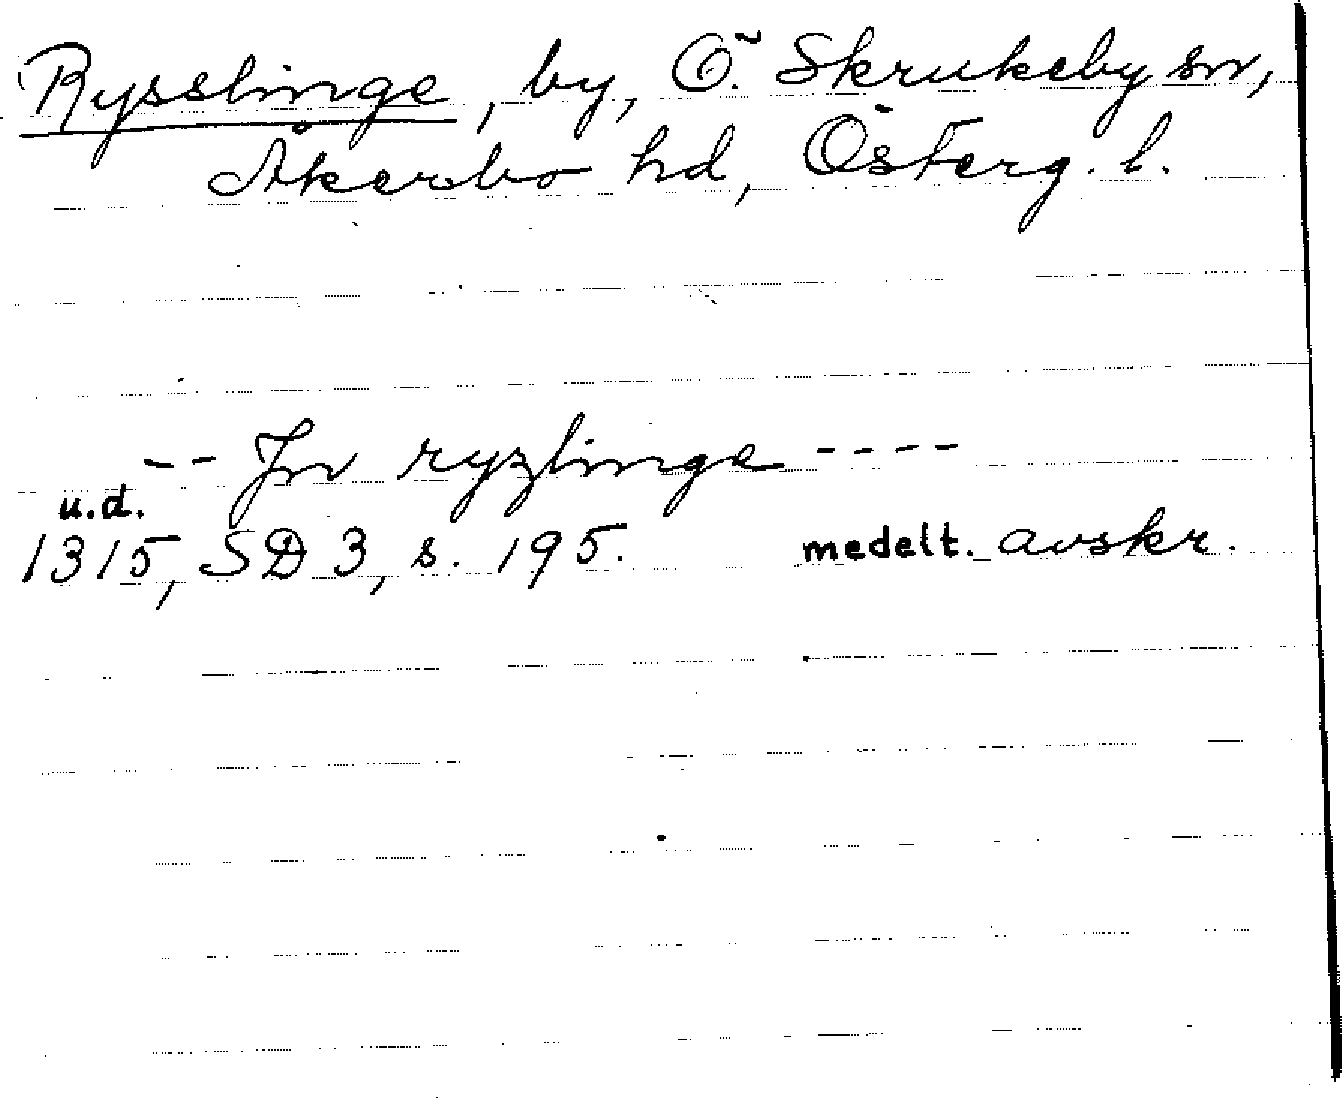 Rysslinge, by, Ö. Skrukeby sn,
Åkerbo hd, Österg. l.
-- Jn ryzlinge ----
u.d.
1315, SD 3, s. 195. medelt. avskr.